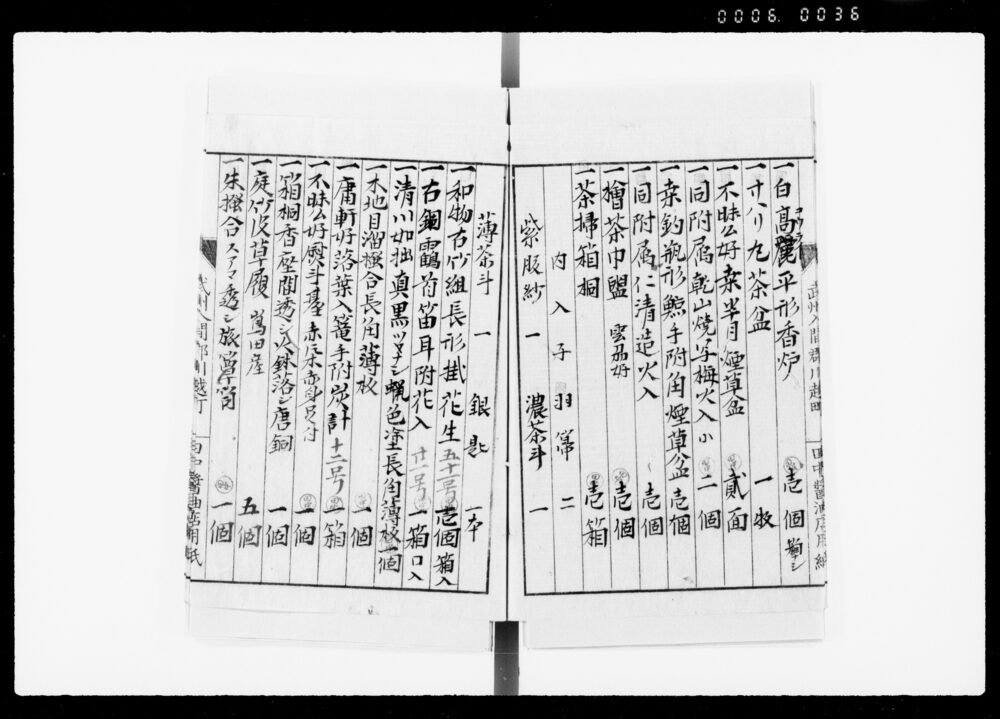 0006 0036
一白高麗平形香炉 壱個 箱ナシ
コウライ
一寸八リ九茶盆 一枚
一不昧公好桒半月煙草盆 貳面
一同附属乾山焼写梅火入小 二個
一桒釣瓶形鯨手附角煙草盆 壱個
一同附属仁清造火入 壱個
一檜茶巾盥 雲州好 壱個
一茶掃箱桐 壱箱
内 入子羽箒 二
紫服紗 一 濃茶斗 一
薄茶斗 一 銀匙 一本
一和物古竹組長形掛花生 五十号 壱個箱入
一古銅靏首笛耳附花入 廿一号 一箱口入
一清川如拙真黒ツヤナシ蝋色塗長角薄板 一個
一木地目溜摺合長角薄板 一個
一庸軒好落葉入篭手附炭計 十二号 一箱
一不昧公好熨斗基 赤尽赤身足付 一個
一箱桐香座間透シ火鉢落シ唐銅 一個
一庭竹皮草履 嶌田産 五個
一朱摺合スアマ透シ旅箪笥 一個
武州入間郡川越町
田中醬油店用紙
武州入間郡川越町
田中醬油店用紙